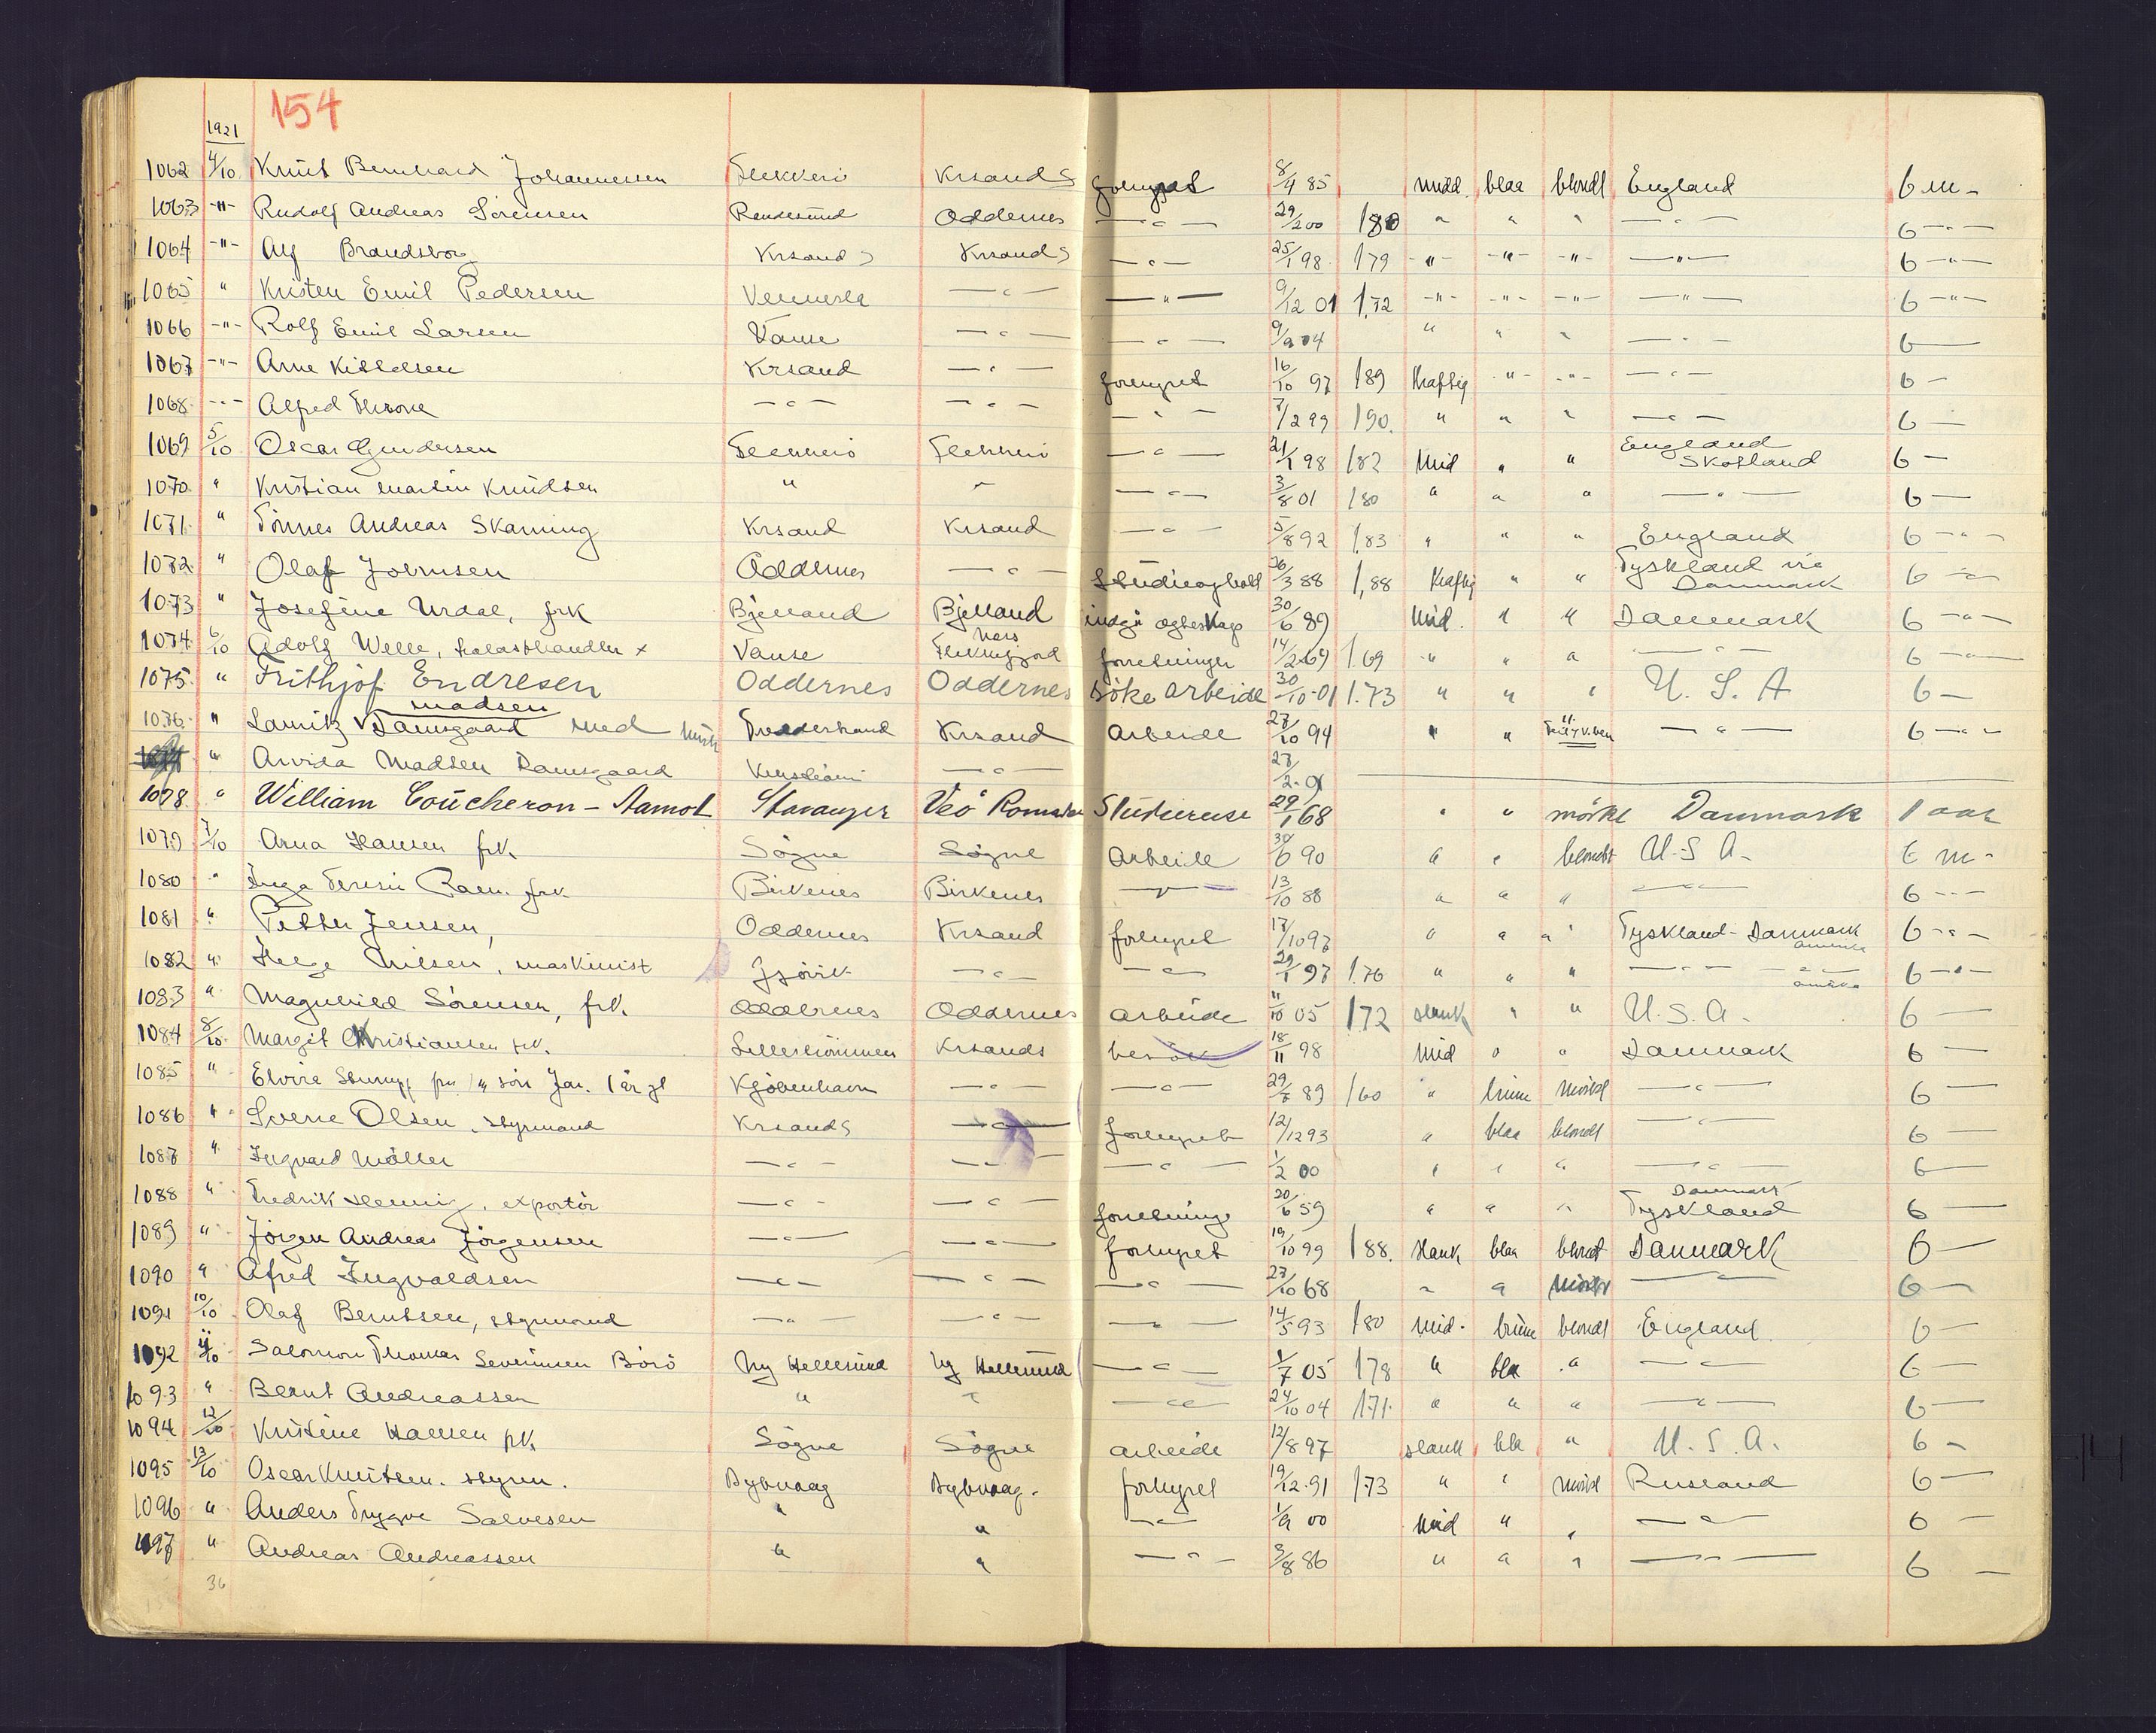 154
1921
1062 4/10 Knut Bernhard Johannessen Flekkerö Krsand S forhyret 8/4 85 midd. blaa blondt England 6 m -
1063 -"- Rudolf Andreas Sörensen Randesund Oddernes -"- 29/2 00 180 " " " -"- 6 -"-
1064 -"- Alf Brandsborg Krsand S Krsand S -"- 25/1 98 179 -"- -"- -"- -"- 6 -"-
1065 " Kristen Emil Pedersen Vennesla -"- -"- 9/12 01 1.72 -"- -"- -"- -"- 6 -"-
1066 -"- Rolf Emil Larsen Vanse -"- -"- 9/9 04 " " " -"- 6 -
1067 -"- Arne Kittelsen Krsand -"- forhyret 16/10 97 189 Kraftig -"- -"- -"- 6 -
1068 -"- Alfred Throne -"- -"- -"- 7/2 99 190. " " " -"- 6 -
1069 5/10 Oscar Gundersen Flekkerö Flekkerö -"- 21/1 98 182 Mid " " England Skotland 6 -
1070 " Kristian Martin Knudsen " " -"- 3/8 01 180 " " " -"- 6 -
1071 " Tönnes Andreas Skarning Krsand Krsand -"- 5/8 92 1.83 " " " England 6 -"-
1072 " Olaf Joernsen Oddernes -"- Studieophold 26/3 88 1,88 Kraftig " " Tyskland via Danmark 6 -"-
1073 " Josefine Urdal, frk Bjelland Bjelland indgå ægteskap 30/6 89 Mid. " " Danmark 6 -"-
1074 6/10 Adolf Welle, trelasthandler x Vanse forretninger 14/2 69 1.69 " " " -"- 6 -"-
1075 " Frithjof Endresen Oddernes Oddernes söke arbeide 30/10-01 1.73 " " " U. S. A 6 -
1076 " Lauritz Madsen Damsgaard med Krsand Arbeide 27/10 94 " " -"- 6 -"-
" Arvida Madsen Damsgaard Kristiania -"- 27/2-01
1078 " William Coucheron-Aamot Stavanger Veö Romsdal Studiereise 29/1 68 " " mörke Danmark 1 aar
1079 7/10 Anna Hansen frk. Sögne Sögne Arbeide 30/6 90 " " blondt U.S A. 6 m -
1080 " Inga Teresie Raen. frk Birkenes Birkenes -"- 13/10 88 " " " -"- 6 -"-
1081 " Petter Jensen, Oddernes Krsand forhyret 17/10 97 " " " Tyskland - Danmark Amerika 6 -"-
1082 " Helge Nilsen, maskinist Gjövik -"- -"- 29/1 97 1.76 " " " -"- -"- Amerika 6 -"-
1083 " Magnhild Sörensen, frk. Oddernes Oddernes arbeide 11/10 05 1.72 slank " " U.S.A. 6 -
1084 8/10 Margit Christiansen frk. Lilleströmmen Krsands besök 18/11 98 Mid " " Danmark 6 -
1085 " Elvira Stumpf fru m/ sön Jan. 1 år gl Kjöbenhavn -"- -"- 29/7 89 160 " brune mörkt -"- 6 -
1086 " Sverre Olsen, styrmand Krsand S -"- forhyret 12/12 93 " blaa blondt -"- 6 -
1087 " Ingvard Möller -"- -"- -"- 1/2 00 " " " -"- 6 -
1088 " Fredrik Hennig, exportör -"- -"- forretninge 20/6 59 " " " Danmark Tyskland 6 -
1089 " Jörgen Andreas Jörgensen -"- -"- forhyret 19/10 99 188. slank blaa blondt Danmark 6 -
1090 " Afred Ingvaldsen -"- -"- -"- 27/10 68 " " mörkt -"- 6 -
1091 10/10 Olaf Berntsen, styrmand -"- -"- -"- 14/5 93 180 mid. brune blondt England. 6 -
1092 11/10 Salomon Thomas Severinsen Börö Ny Hellesund Ny Hellesund -"- 1/7 05 178 " blaa " -"- 6 -
1093 " Bernt Andreassen " " -"- 24/10 04 171. " " " -"- 6 -
1094 12/10 Kristine Hansen frk. Sögne Sögne arbeide 12/8 97 slank bla " U. S. A. 6 -
1095 13/10 Oscar Knutsen. styrm. Dybvaag Dybvaag. forhyret 19/12.91 173 " " mörkt Rusland 6 -
1096 " Anders Trygve Salvesen " " -"- 1/9 00 Mid " " -"- 6 -
1097 " Andreas Andreassen " " -"- 3/8 86 " " " -"- 6 -
36